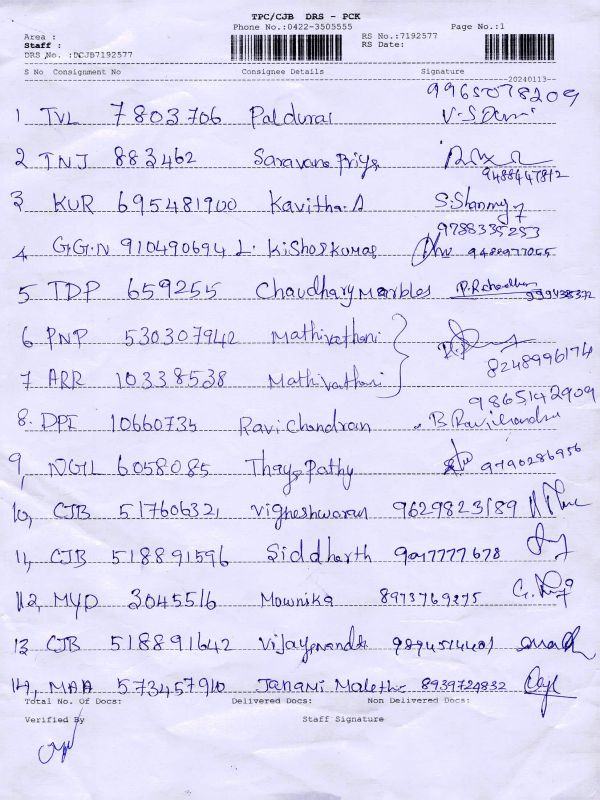 TPC/CJB DRS - PCK
Phone No.:0422-3505555
Page No.:1
Area :
RS No.:7192577
Staff :
RS Date:
DRS No. :DCJB7192577
S No Consignment No Consignee Details Signature
20240113
9965078209
1 TVL 7803706 Paldurai
2 TNJ 883462 Saravana Priya
9488447812
3 KUR 695481900 Kavitha.A S.Shanmy
9788335253
4 G.G.N 910490694 L. Kishorkumar 9488977055
5 TDP 659255 Chaudhary Marbles
6 PNP 530307942 Mathivathani
8248996174
7 ARR 10338538 Mathivathani
9865142909
8. DPI 10660735 Ravi Chandran B Ravichandra
9, NGIL 6058085 9790286956
10, CJB 517606321 Vigheshwaran 9629823189
11, CJB 518891596 Siddharth 9047777678
12, MYD 3045516 Mownika 8973769275
13 CJB 518891642
14, MAA 573457910 Janani 8939724832
Total No. Of Docs: Delivered Docs: Non Delivered Docs:
Verified By Staff Signature